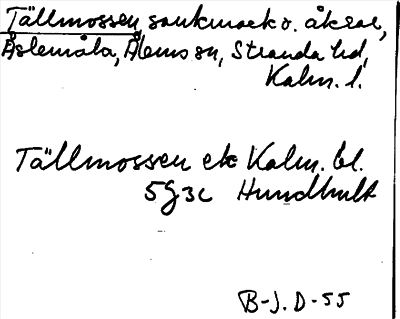 Tällmossen, sankmark o. åkrar,
Åslemåla, Ålems sn, Stranda hd,
Kalm. l.
Tällmossen ek Kalm. bl.
5g3c Hundhult
B-J. D-55